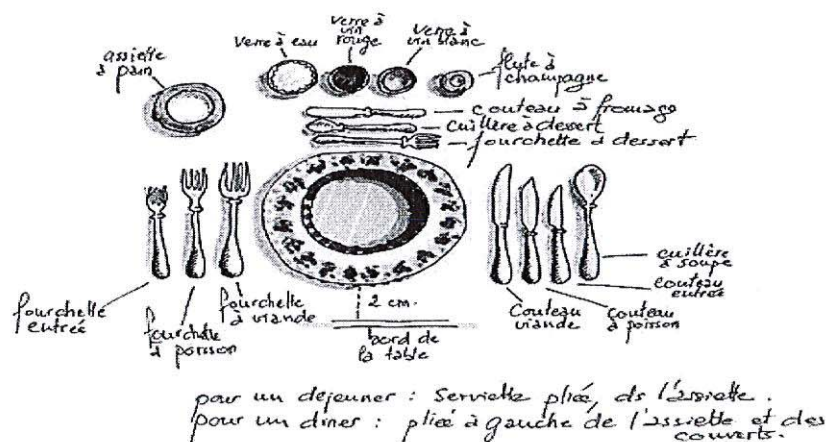 assiette
à pain
verre à eau
verre à
vin
rouge
verre à
vin blanc
flute à
champagne
couteau à fromage
cuillère à dessert
fourchette à dessert
fourchette
entrée
fourchette
à poisson
fourchette
à viande
2 cm.
bord de
la table
Couteau
viande
couteau
à poisson
couteau
entrée
cuillère
à soupe
pour un déjeuner : Serviette pliée, ds l'assiette.
pour un diner : pliée à gauche de l'assiette et des
couverts.